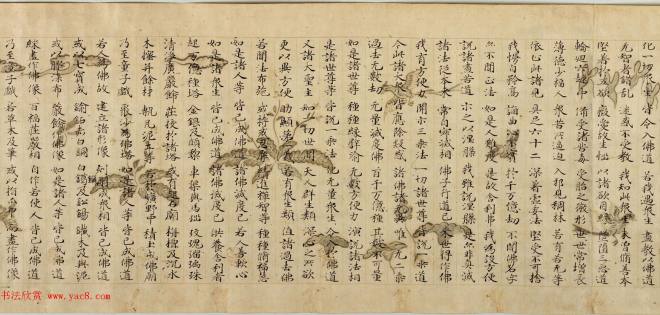 化一切衆生 皆令入佛道 若我遇衆生 盡教以佛道
无智者錯乱 迷惑不受教 我知此衆生 未曾脩善本
堅著於五欲 癡愛故生惱 以諸欲因緣 墜墮三惡道
輪迴六趣中 備受諸苦毒 受胎之微形 世世常增長
薄德少福人 衆苦所逼迫 入邪見稠林 若有若无等
依止此諸見 具足六十二 深著虛妄法 堅受不可捨
我慢自矜高 諂曲心不實 於千万億劫 不聞佛名字
亦不聞正法 如是人難度 是故舍利弗 我為設方便
說諸盡苦道 示之以涅槃 我雖說涅槃 是亦非真滅
諸法從本來 常自寂滅相 佛子行道已 來世得作佛
我有方便力 開示三乘法 一切諸世尊 皆說一乘道
今此諸大衆 皆應除疑惑 諸佛語无異 唯一无二乘
過去无數劫 无量滅度佛 百千万億種 其數不可量
如是諸世尊 種種緣譬喻 无數方便力 演說諸法相
是諸世尊等 皆說一乘法 化无量衆生 令入於佛道
又諸大聖主 知一切世間 天人群生類 深心之所欲
更以異方便 助顯第一義 若有衆生類 值諸過去佛
若聞法布施 或持戒忍辱 精進禪智等 種種脩福慧
如是諸人等 皆已成佛道 諸佛滅度已 若人善軟心
如是諸衆生 皆已成佛道 諸佛滅度已 供養舍利者
起万億種塔 金銀及頗梨 車磲與馬瑙 玫瑰瑠璃珠
清淨廣嚴飾 莊校於諸塔 或有起石廟 栴檀及沉水
木櫁并餘材 甎瓦泥土等 若於曠野中 積土成佛廟
乃至童子戲 聚沙為佛塔 如是諸人等 皆已成佛道
若人為佛故 建立諸形像 刻雕成衆相 皆已成佛道
或以七寶成 鍮石赤白銅 白鑞及鉛錫 鐵木及與泥
或以膠漆布 嚴飾作佛像 如是諸人等 皆已成佛道
綵畫作佛像 百福莊嚴相 自作若使人 皆已成佛道
乃至童子戲 若草木及筆 或以指爪甲 而畫作佛像
书法欣赏
www.yac8.com